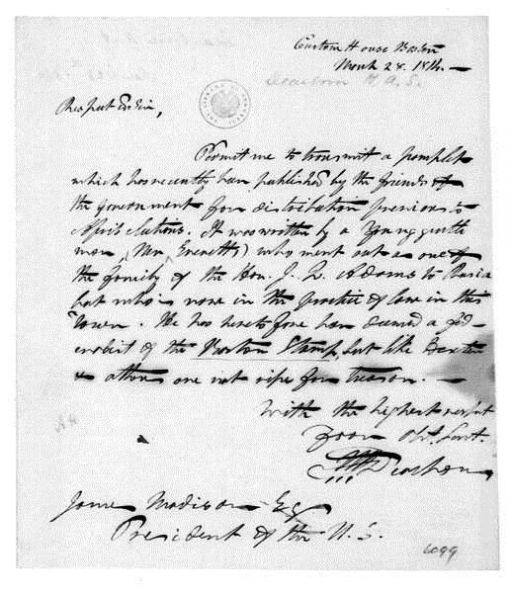 Custom House Boston
March 28. 1814. —
Dearborn H. A. S.
Respected Sir,
Permit me to transmit a pamplet
which has recently been published by the friends of
the government for distribution previous to
April elections. It was written by a young gentle
man (Mr. Everett) who went out as one of
the family of the Hon. J. Q. Adams to Russia
but who is now in the practice of law in this
town. He has heretofore been deemed a fed-
eralist of the Boston Stamp, but like Dexter
& others are not ripe for treason. —
With the highest respect
Your Obt. Servt.
Dearborn
James Madison Esq
President of the U. S.
6099